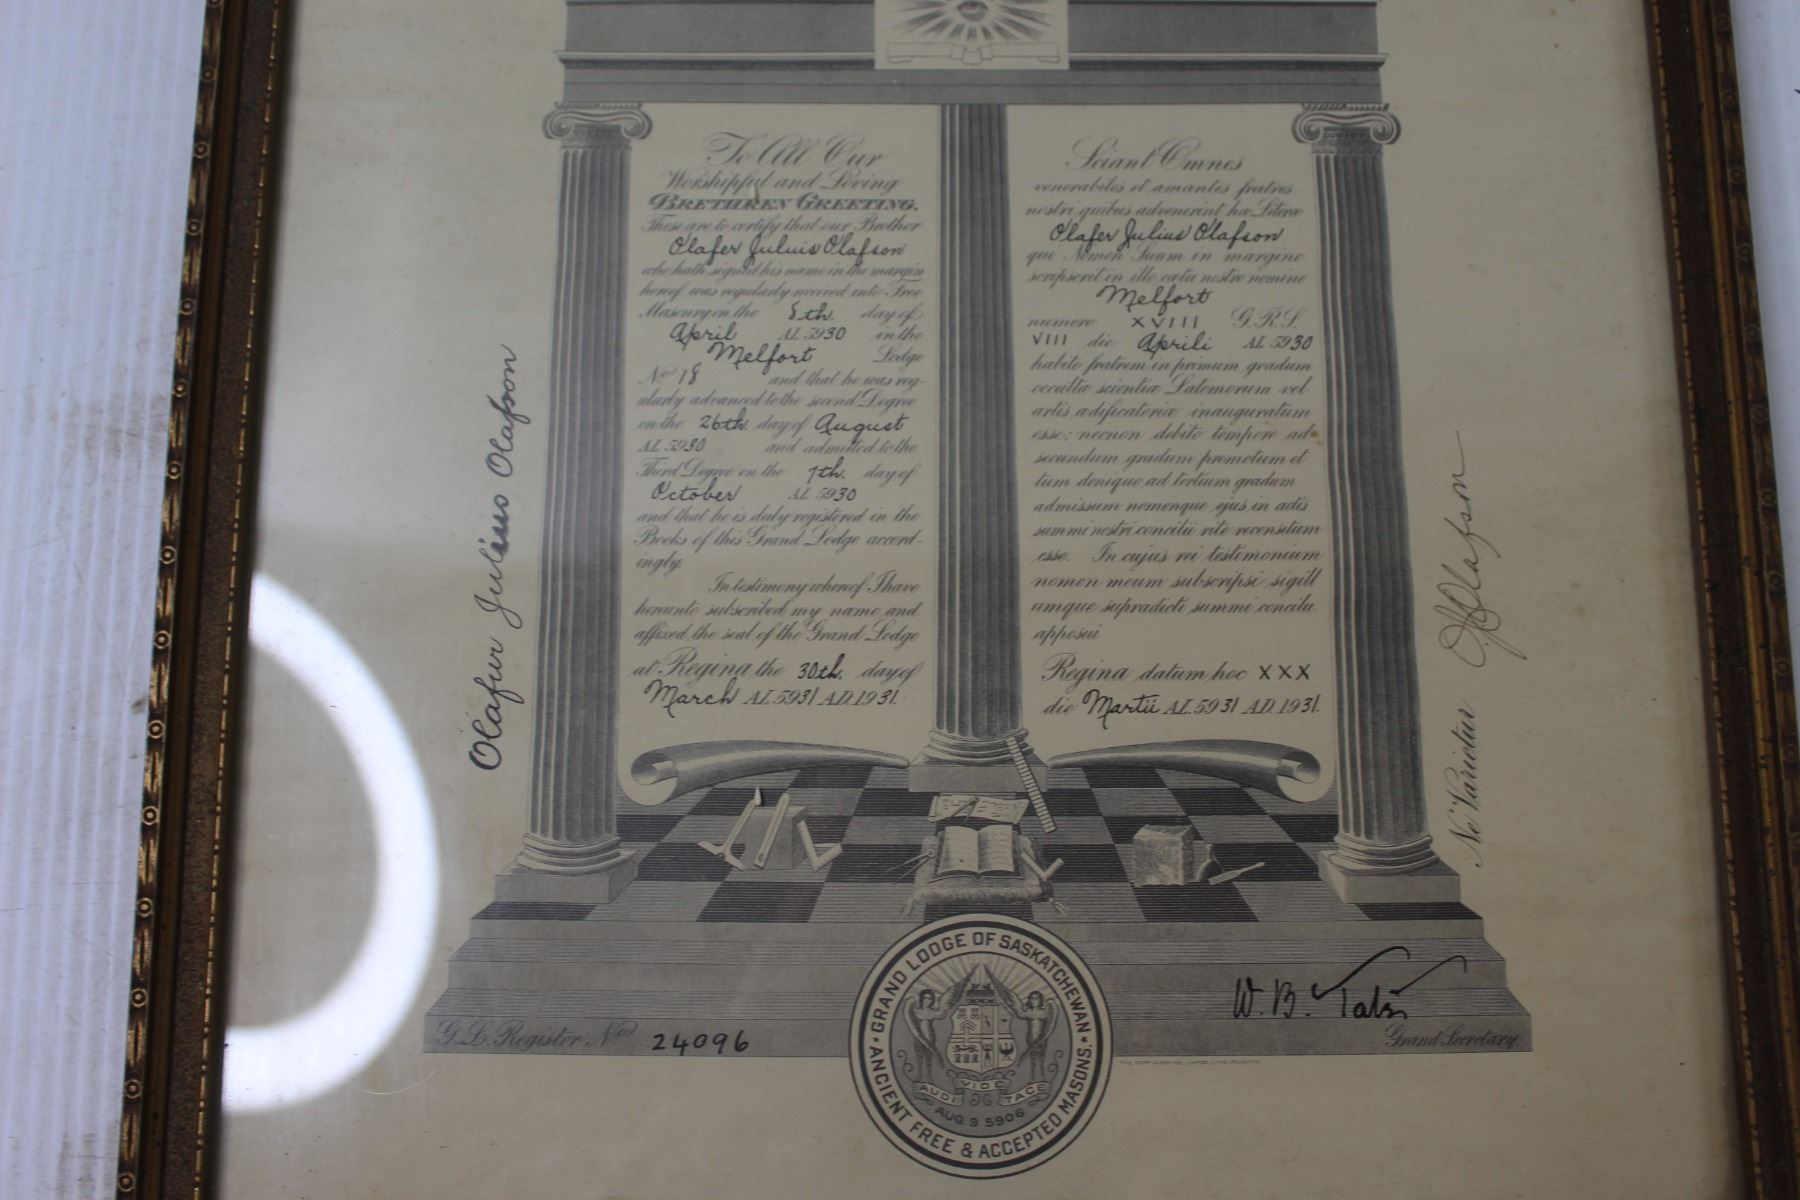 To All Our
Worshipful and Loving
BRETHREN GREETING.
These are to certify that our Brother
Olafer Juluis Olafson
who hath signed his name in the margin
hereof was regularly received into Free
Masonry on the 8th. day of
April AL 5930 in the
Melfort Lodge
No 18 and that he was reg-
ularly advanced to the second Degree
on the 26th. day of August
AL 5930 and admitted to the
Third Degree on the 7th. day of
October AL 5930
and that he is duly registered in the
Books of this Grand Lodge accord-
ingly.
In testimony whereof I have
hereunto subscribed my name and
affixed the seal of the Grand Lodge
at Regina the 30th. day of
March AL 5931 A.D. 1931.
Sciant Omnes
venerabiles et amantes fratres
nostri quibus advenerint hæ Literæ
Olafer Julius Olafson
qui Nomen Suum in margine
scripserit in illo cætu nostro nomine
Melfort
numero XVIII G.R.S.
VIII die Aprili AL 5930
habito fratrem in primum gradum
occultæ scientiæ Latomorum vel
artis ædificatoriæ inauguratum
esse; necnon debito tempore ad
secundum gradum promotum et
tum denique ad tertium gradum
admissum nomenque ejus in actis
summi nostri concilii rite recensitum
esse. In cujas rei testimonium
nomen meum subscripsi sigill
umque supradicti summi concilu
apposui
Regina datum hoc XXX
die Martii AL 5931 A.D. 1931.
Olafur Julius Olafson
Ne Varietur OJOlafson
G. L. Register No 24096
W. B. Tate
Grand Secretary.
GRAND LODGE OF SASKATCHEWAN
ANCIENT FREE & ACCEPTED MASONS.
AUDI VIDE TACE
AUG. 9. 5906